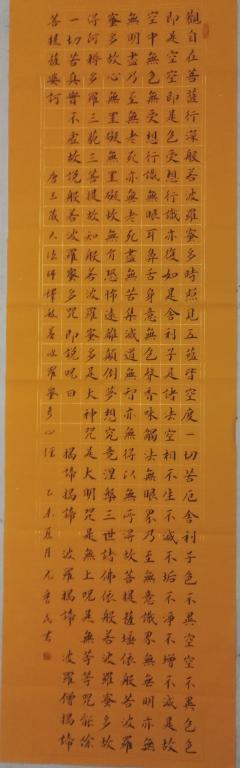 觀自在菩薩行深般若波羅蜜多時照見五蘊皆空度一切苦厄舍利子色不異空空不異色色
即是空空即是色受想行識亦復如是舍利子是諸法空相不生不滅不垢不淨不增不減是故
空中無色無受想行識無眼耳鼻舌身意無色聲香味觸法無眼界乃至無意識界無無明亦無
無明盡乃至無老死亦無老死盡無苦集滅道無智亦無得以無所得故菩提薩埵依般若波羅
蜜多故心無罣礙無罣礙故無有恐怖遠離顛倒夢想究竟涅槃三世諸佛依般若波羅蜜多故
得阿耨多羅三藐三菩提故知般若波羅蜜多是大神咒是大明咒是無上咒是無等等咒能除
一切苦真實不虛故說般若波羅蜜多咒即說咒曰 揭諦揭諦 波羅揭諦 波羅僧揭諦
菩提薩婆訶 唐三藏大法師譯般若波羅蜜多心經 乙未夏月